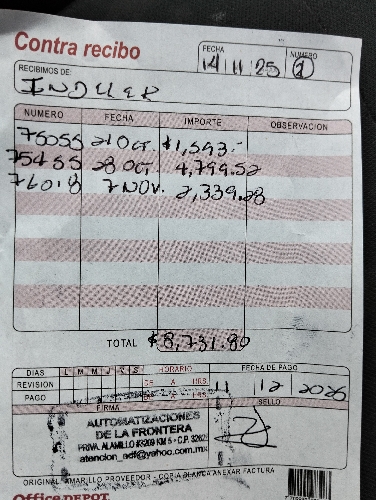 Contra recibo
FECHA
14 11 25
NUMERO
1
RECIBIMOS DE:
INDLLER
NUMERO FECHA IMPORTE OBSERVACION
75055 21 OCT. $1,593.-
75455 28 OCT. 4,799.52
76018 7 NOV. 2,339.28
TOTAL $8,731.80
DIAS L M M J V S HORARIO FECHA DE PAGO
REVISION DE A HRS. 11 12 2025
PAGO DE A HRS.
FIRMA SELLO
AUTOMATIZACIONES
DE LA FRONTERA
PRIVA. ALAMILLO #3209 KM 5 - C.P.
atencion_adf@yahoo.com.mx
ORIGINAL AMARILLO PROVEEDOR - COPIA BLANCA ANEXAR FACTURA
Office DEPOT